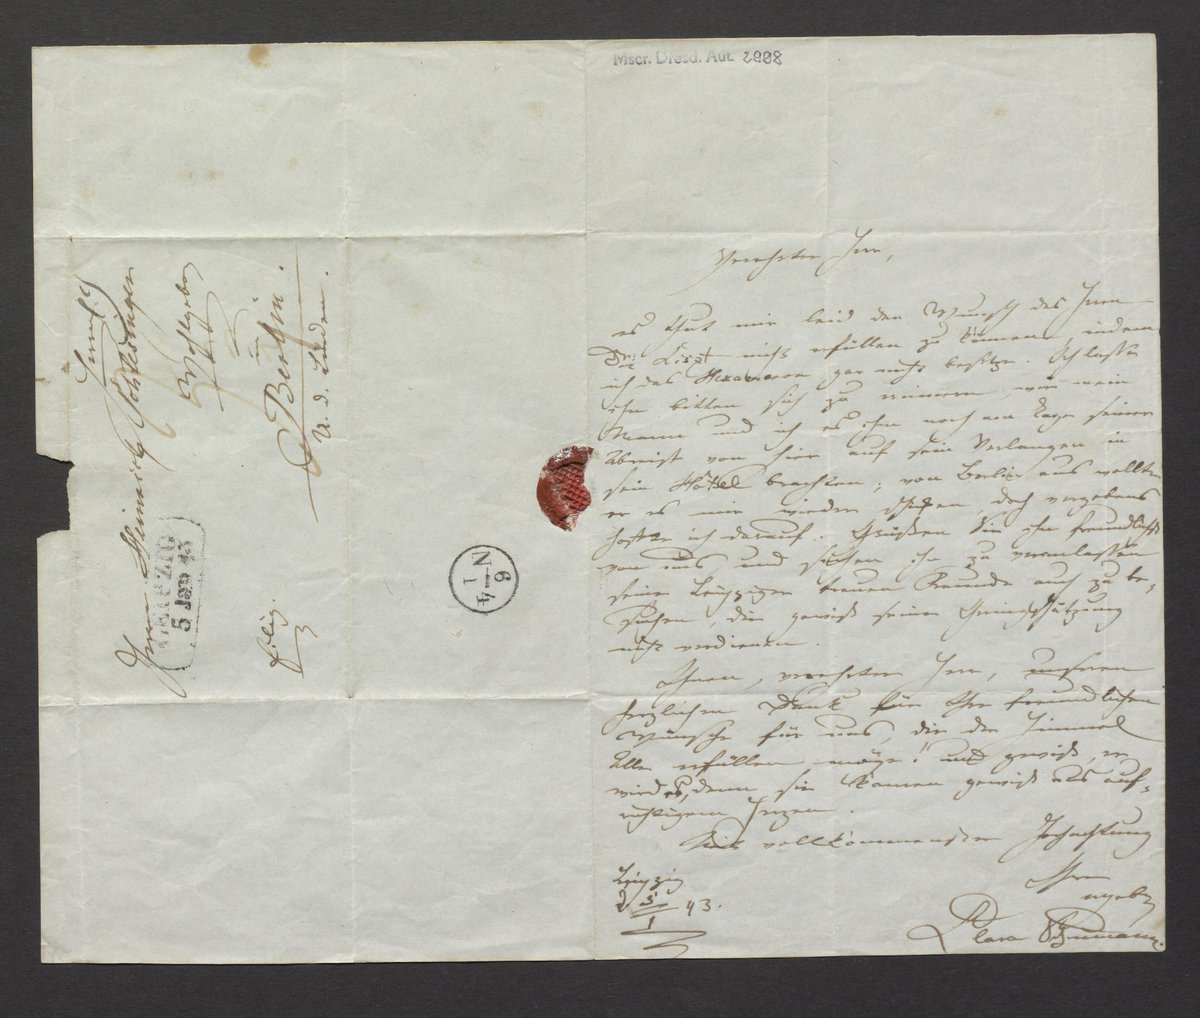 Mscr. Dresd. Aut. 2998
Verehrter Herr,
es thut mir leid den Wunsch des Herrn
Dr: Liszt nicht erfüllen zu können, indem
ich das Hexameron gar nicht besitze. Ich lasse
ihn bitten sich zu erinnern, wie mein
Mann und ich es ihm noch am Tage seiner
Abreise von hier auf sein Verlangen in
sein Hôtel brachten; von Berlin aus wollte
er es mir wieder schicken, doch vergebens
hoffte ich darauf. Grüßen Sie ihn freundlichst
von uns und suchen ihn zu veranlassen
seine Leipziger treuen Freunde auch zu be-
suchen, die gewiß seine Geringschätzung
nicht verdienten.
Ihnen, verehrter Herr, unseren
herzlichen Dank für Ihre freundlichen
Wünsche für uns, die der Himmel
Alle erfüllen möge! und gewiß, er
wird es, denn sie kamen gewiß aus auf-
richtigem Herzen.
Mit vollkommenster Hochachtung
Ihre
ergeb
Leipzig
d 5/1 43.
Clara Schumann.
Herrn Heinrich Schlesinger
Wohlgeb
in
Berlin.
U. d. Linden.
frei
LEIPZIG
5 Jan 43
N 1
6